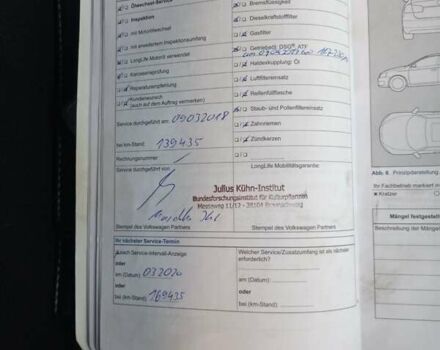 Ölwechsel-Service
Inspektion
mit Motorölwechsel
mit erweitertem Inspektionsumfang
LongLife Motoröl verwendet
Karosserieprüfung
Reparaturempfehlung
Kundenwunsch
(auch auf dem Auftrag vermerken)
Service durchgeführt am: 09032018
bei km-Stand: 139435
Rechnungsnummer
Service durchgeführt von:
Stempel des Volkswagen Partners
Bremsflüssigkeit
Dieselkraftstofffilter
Gasfilter
Getriebeöl: DSG® ATF
Haldexkupplung: Öl
Luftfiltereinsatz
Reifenfüllflasche
Staub- und Pollenfiltereinsatz
Zahnriemen
Zündkerzen
LongLife Mobilitätsgarantie:
Julius Kühn-Institut
Bundesforschungsinstitut für Kulturpflanzen
Messeweg 11/12 - 38104 Braunschweig
Stempel des Volkswagen Partners
Ihr nächster Service-Termin
nach Service-Intervall-Anzeige
oder
am (Datum): 032020
oder
bei (km-Stand): 169435
Welcher Service/Zusatzumfang ist als nächstes
erforderlich?
am (Datum):
oder
bei (km-Stand):
Abb. 6 Prinzipdarstellung
Ihr Fachbetrieb markiert
Kratzer
Mängel festgestellt
Beschreibung der Mängel